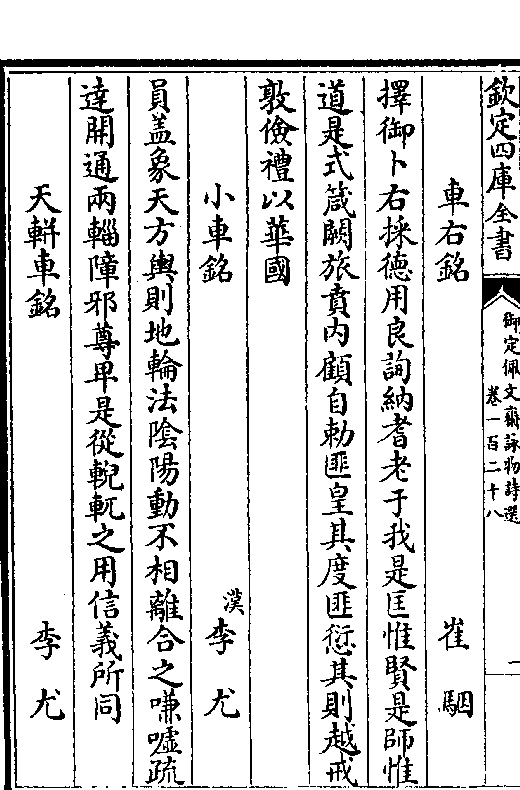 欽定四庫全書
御定佩文齋詠物詩選
卷一百二十八
一
車右銘 崔駰
擇御卜右採德用良詢納耆老于我是匡惟賢是師惟
道是式箴闕旅賁内顧自勅匪皇其度匪愆其則越戒
敦儉禮以華國
小車銘 漢 李尤
員盖象天方輿則地輪法陰陽動不相離合之嗛噓疏
達開通兩轓障邪尊卑是從輗軏之用信義所同
天軿車銘 李尤